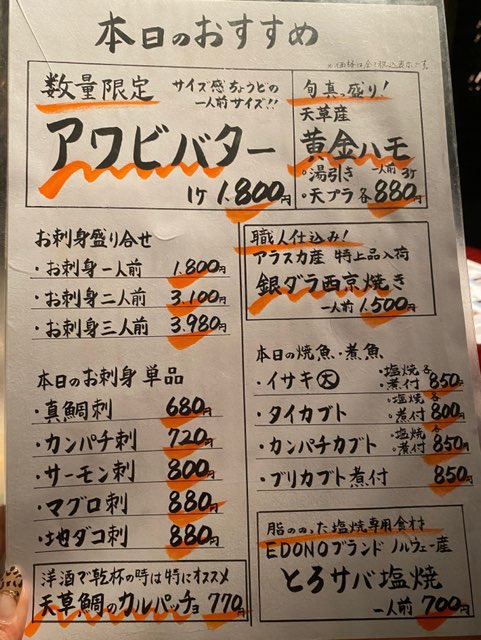 本日のおすすめ
※価格は全て税込表示です
数量限定
サイズ感ちょうどの
一人前サイズ!!
アワビバター
1ケ 1.800円
旬真っ盛り!
天草産
黄金ハモ
・湯引き 一人前 3ケ
・天プラ 各880円
お刺身盛り合せ
・お刺身一人前 1.800円
・お刺身二人前 3.100円
・お刺身三人前 3.980円
職人仕込み!
アラスカ産 特上品入荷
銀ダラ西京焼き
一人前 1.500円
本日のお刺身 単品
・真鯛刺 680円
・カンパチ刺 720円
・サーモン刺 800円
・マグロ刺 880円
・地ダコ刺 880円
本日の焼魚・煮魚
・イサキ大 ・塩焼 ・煮付 各850円
・タイカブト ・塩焼 ・煮付 各800円
・カンパチカブト ・塩焼 ・煮付 各850円
・ブリカブト煮付 850円
洋酒で乾杯の時は特にオススメ
天草鯛のカルパッチョ 770円
脂ののった塩焼専用食材
EDONOブランド ノルウェー産
とろサバ塩焼
一人前 700円